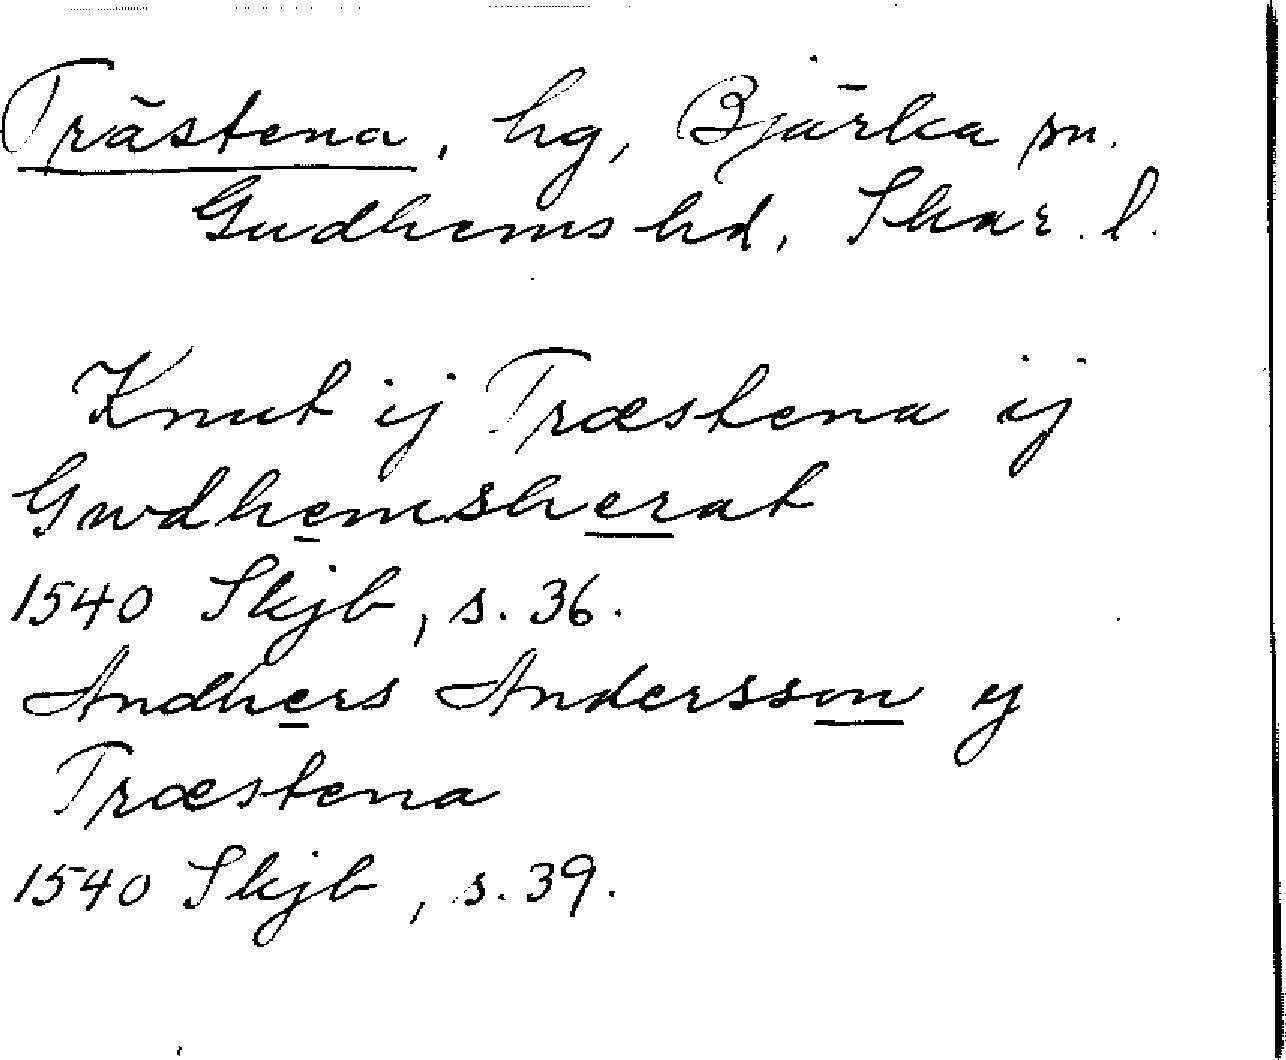 Trästena, hg, Bjärka sn.
Gudhems hd, Skar. l.
Knut ij Træstena ij
Gwdhemsherat
1540 Skjb, s. 36.
Andhers Andersson ij
Træstena
1540 Skjb, s. 39.